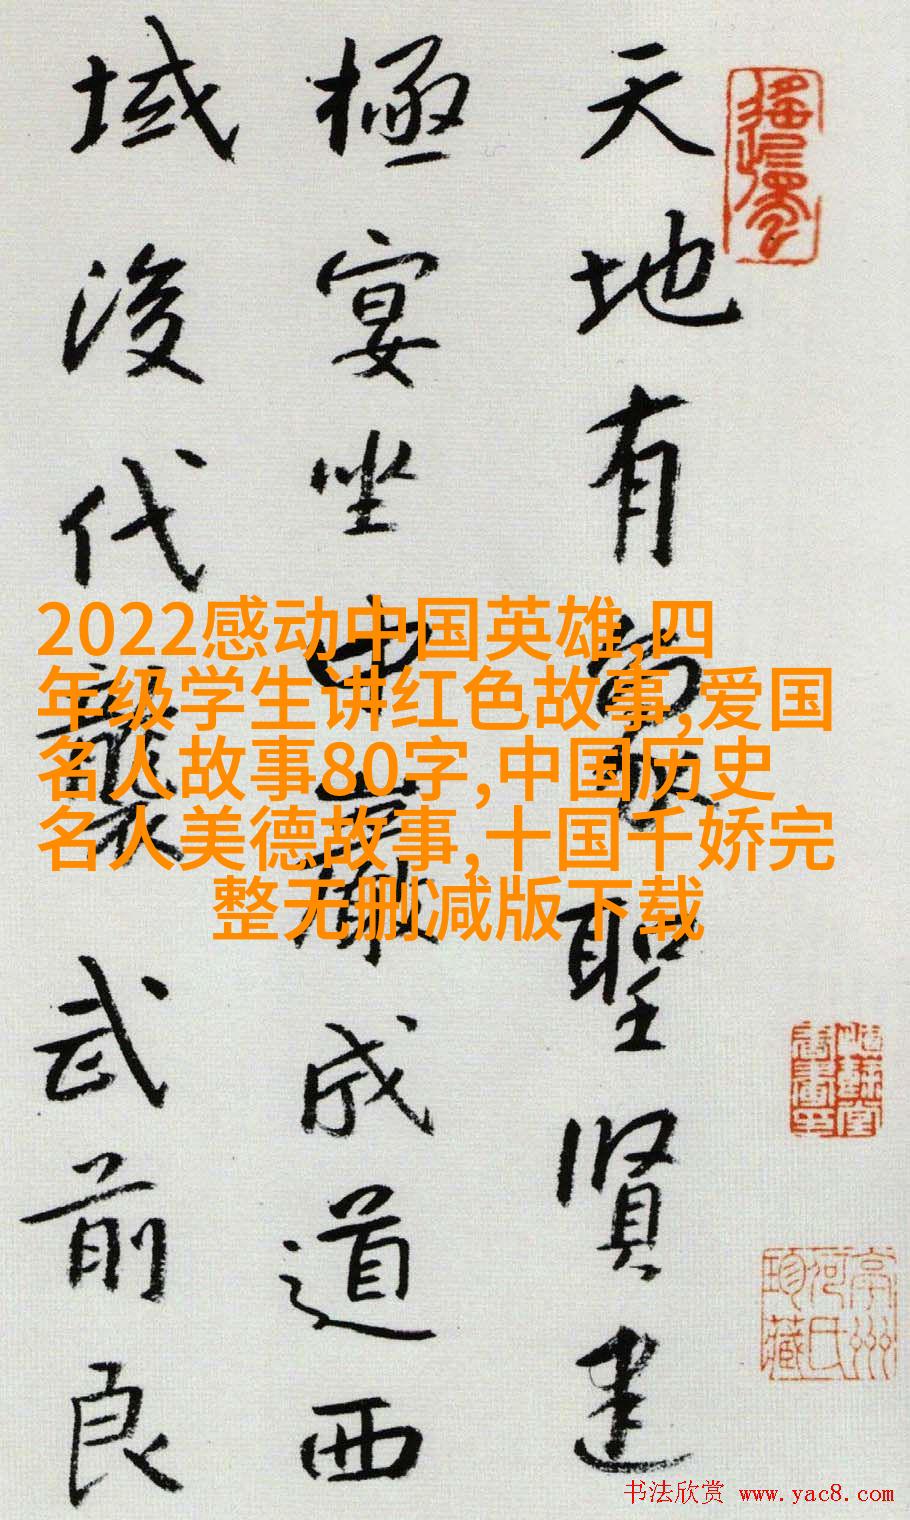 天地有聖賢建
極宴坐中巖成道西
域後代襲武前良
2022感动中国英雄,四
年级学生讲红色故事,爱国
名人故事80字,中国历史
名人美德故事,十国千娇完
整无删减版下载
亭州
何氏
珍藏
书法欣赏 www.yac8.com